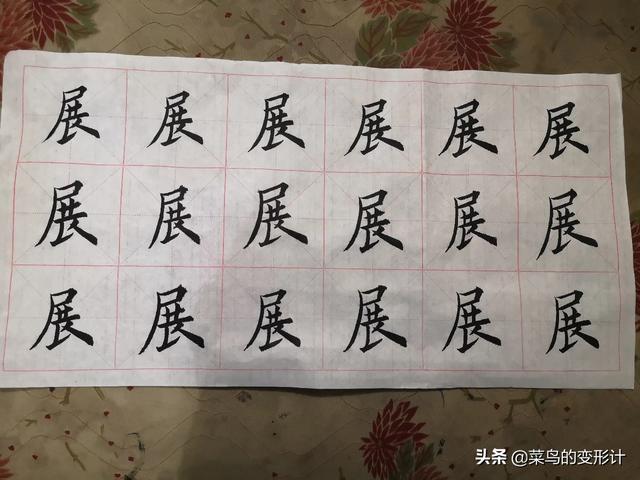 展展展展展展
展展展展展展
展展展展展展
头条 @菜鸟的变形计